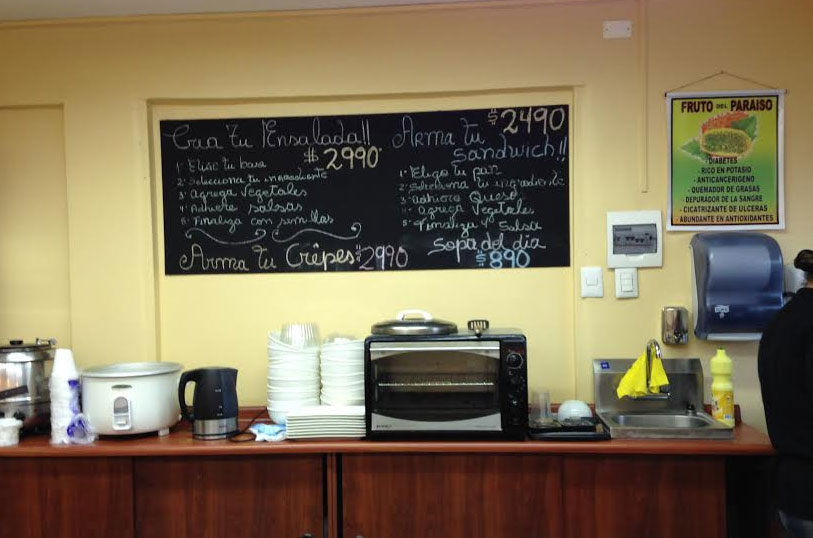 Crea tu Ensalada!!
$ 2990
1º Elige tu base
2º Selecciona tu ingrediente
3º Agrega Vegetales
4º Adhiere salsas
5º Finaliza con semillas
Arma tu Crêpes $ 2990
Arma tu $ 2490
Sandwich!!
1º Elige tu pan
2º Selecciona tu ingrediente
3º Adhiere Queso
4º Agrega Vegetales
5º Finaliza Salsa
Sopa del dia
$ 890
FRUTO DEL PARAISO
DIABETES
- RICO EN POTASIO
- ANTICANCERIGENO
- QUEMADOR DE GRASAS
- DEPURADOR DE LA SANGRE
- CICATRIZANTE DE ULCERAS
- ABUNDANTE EN ANTIOXIDANTES